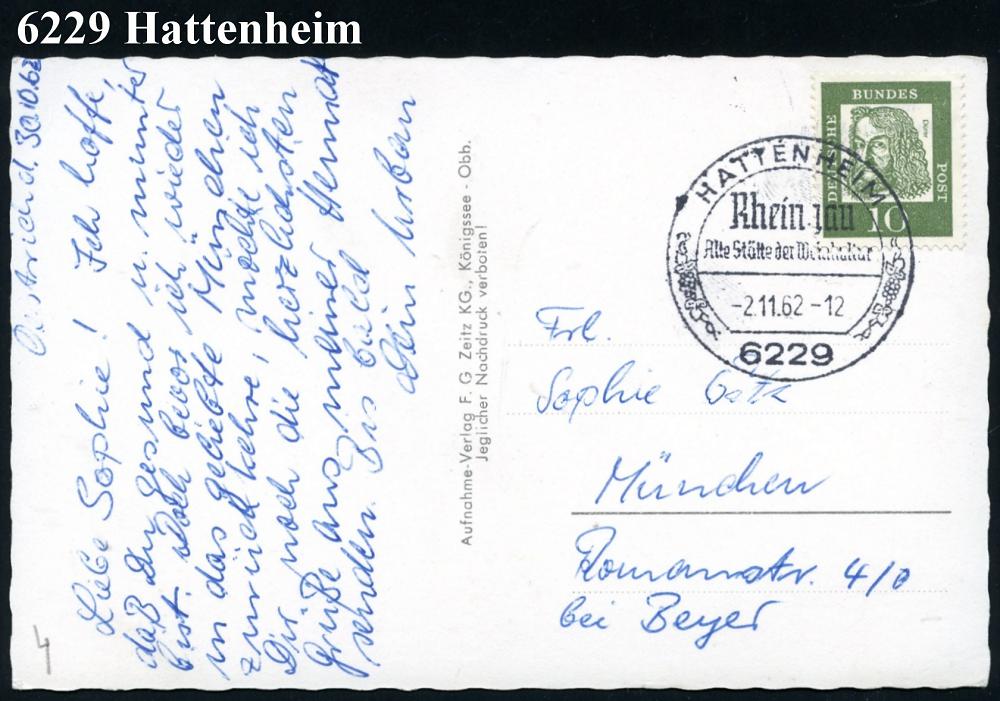 6229 Hattenheim
Oestrich d. 30.10.62
Liebe Sophie! Ich hoffe,
daß Du gesund u. munter
bist. Doch bevor ich wieder
in das geliebte München
zurück kehre, möchte ich
Dir noch die herzlichsten
Grüße aus meiner Heimat
senden. Bis bald
Dein Urban
Aufnahme-Verlag F. G. Zeitz KG., Königssee - Obb.
Jeglicher Nachdruck verboten!
DEUTSCHE
BUNDES
POST
Dürer
10
HATTENHEIM
Rheingau
Alte Stätte der Weinkultur
-2.11.62-12
6229
Frl.
Sophie
München
Romanstr. 4/0
bei Beyer
4